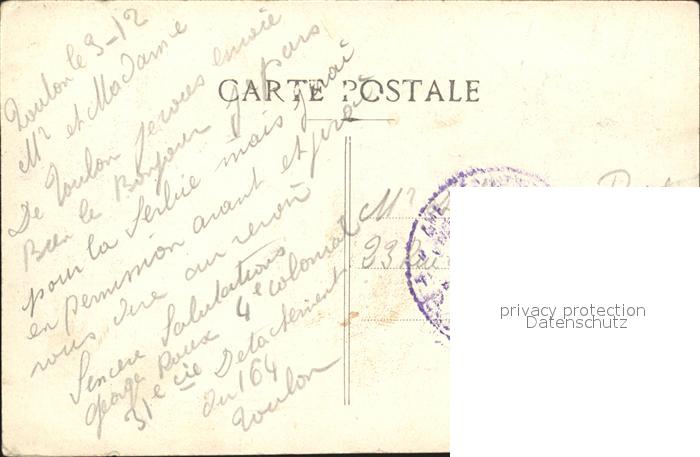 Toulon le 3-12
Mr et Madame
De Toulon je vous envoie
Bien le Bonjour je pars
pour la Serbie mais j'irai
en permission avant et j'irai
vous dire au revoir
Sincère Salutations
George Roux 4e colonial
31e cie Detachement
du 164
Toulon
CARTE POSTALE
Mr
23 Rue
privacy protection
Datenschutz